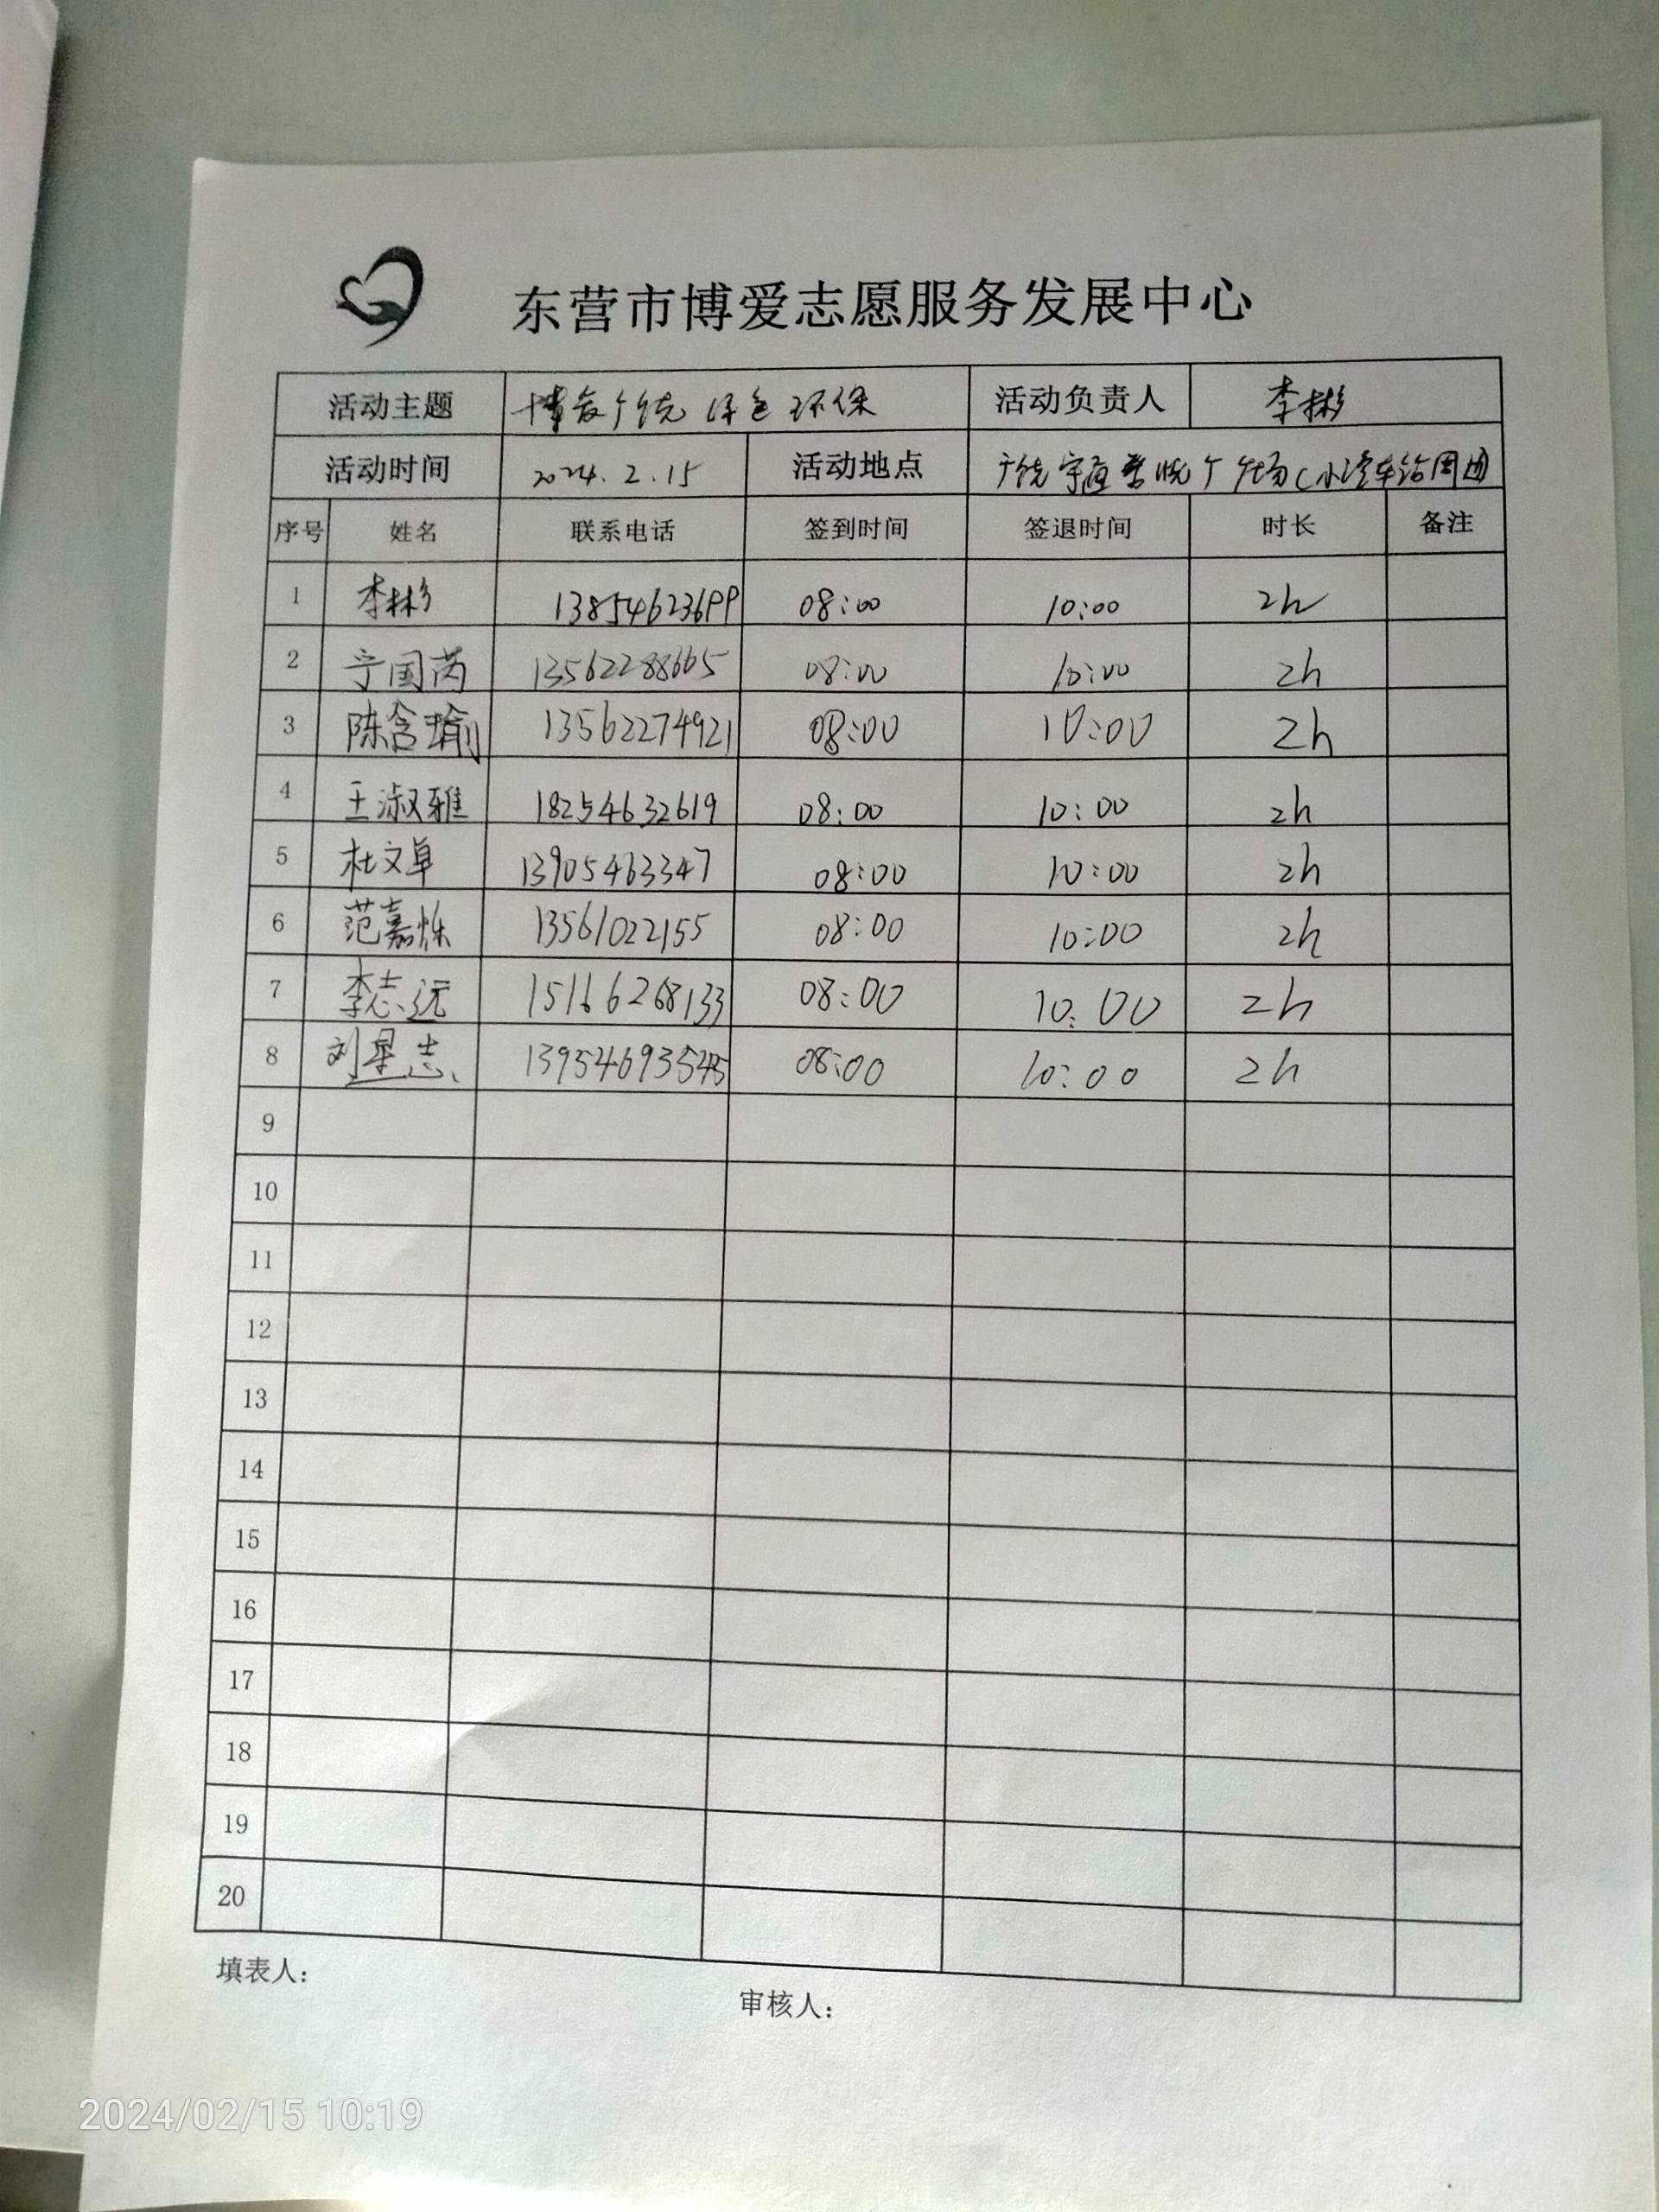 东营市博爱志愿服务发展中心
活动主题 博爱广饶 绿色环保 活动负责人 李彬
活动时间 2024.2.15 活动地点 广饶 广场(小汽车站周边
序号 姓名 联系电话 签到时间 签退时间 时长 备注
1 李彬 13854623699 08:00 10:00 2h
2 宁国芮 13562288665 08:00 10:00 2h
3 陈含瑜 13562274921 08:00 10:00 2h
4 王淑雅 18254632619 08:00 10:00 2h
5 杜文卓 13905463347 08:00 10:00 2h
6 范嘉烁 13561022155 08:00 10:00 2h
7 李志远 15166268133 08:00 10:00 2h
8 刘星志 08:00 10:00 2h
9
10
11
12
13
14
15
16
17
18
19
20
填表人：
审核人：
2024/02/15 10:19